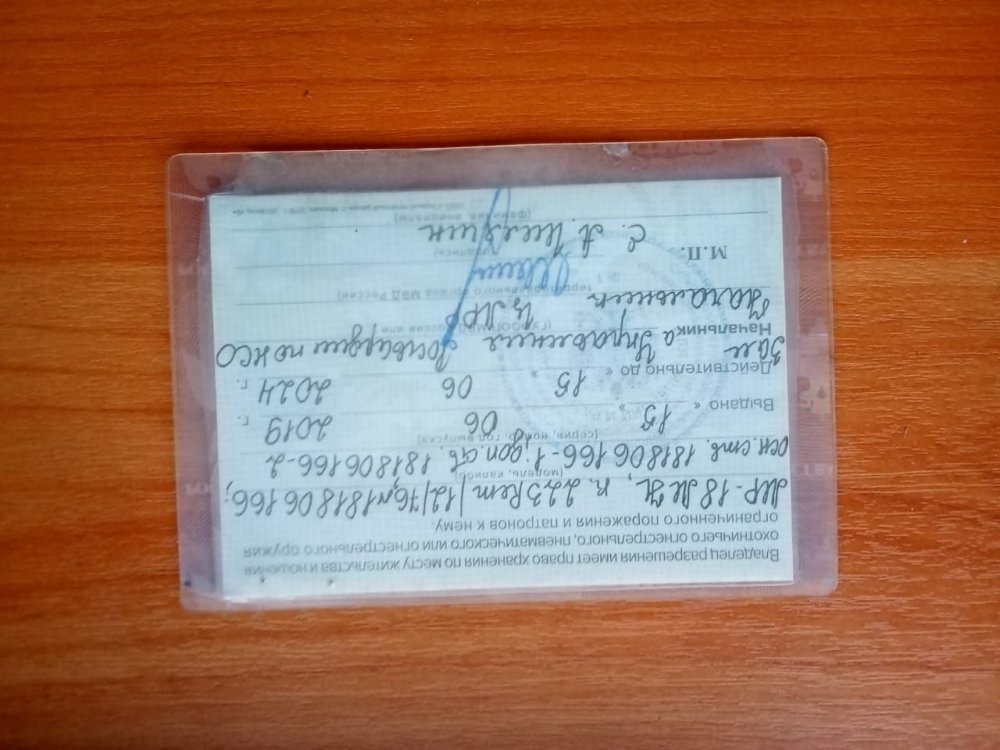 Владелец разрешения имеет право хранения по месту жительства и ношения
охотничьего огнестрельного, пневматического или огнестрельного оружия
ограниченного поражения и патронов к нему.
МР-18МН, к. 223 Rem / 12/76, № 181806166;
(модель, калибр)
осн. ств. 181806166-1; доп. ств. 181806166-2
(серия, номер, год выпуска)
Выдано « 15 » 06 2019 г.
Действительно до « 15 » 06 2024 г.
Зам. Начальника Управления Росгвардии по НСО
Начальник ЦЛРР
территориального органа МВД России)
(подпись)
М.П.
(фамилия, инициалы)